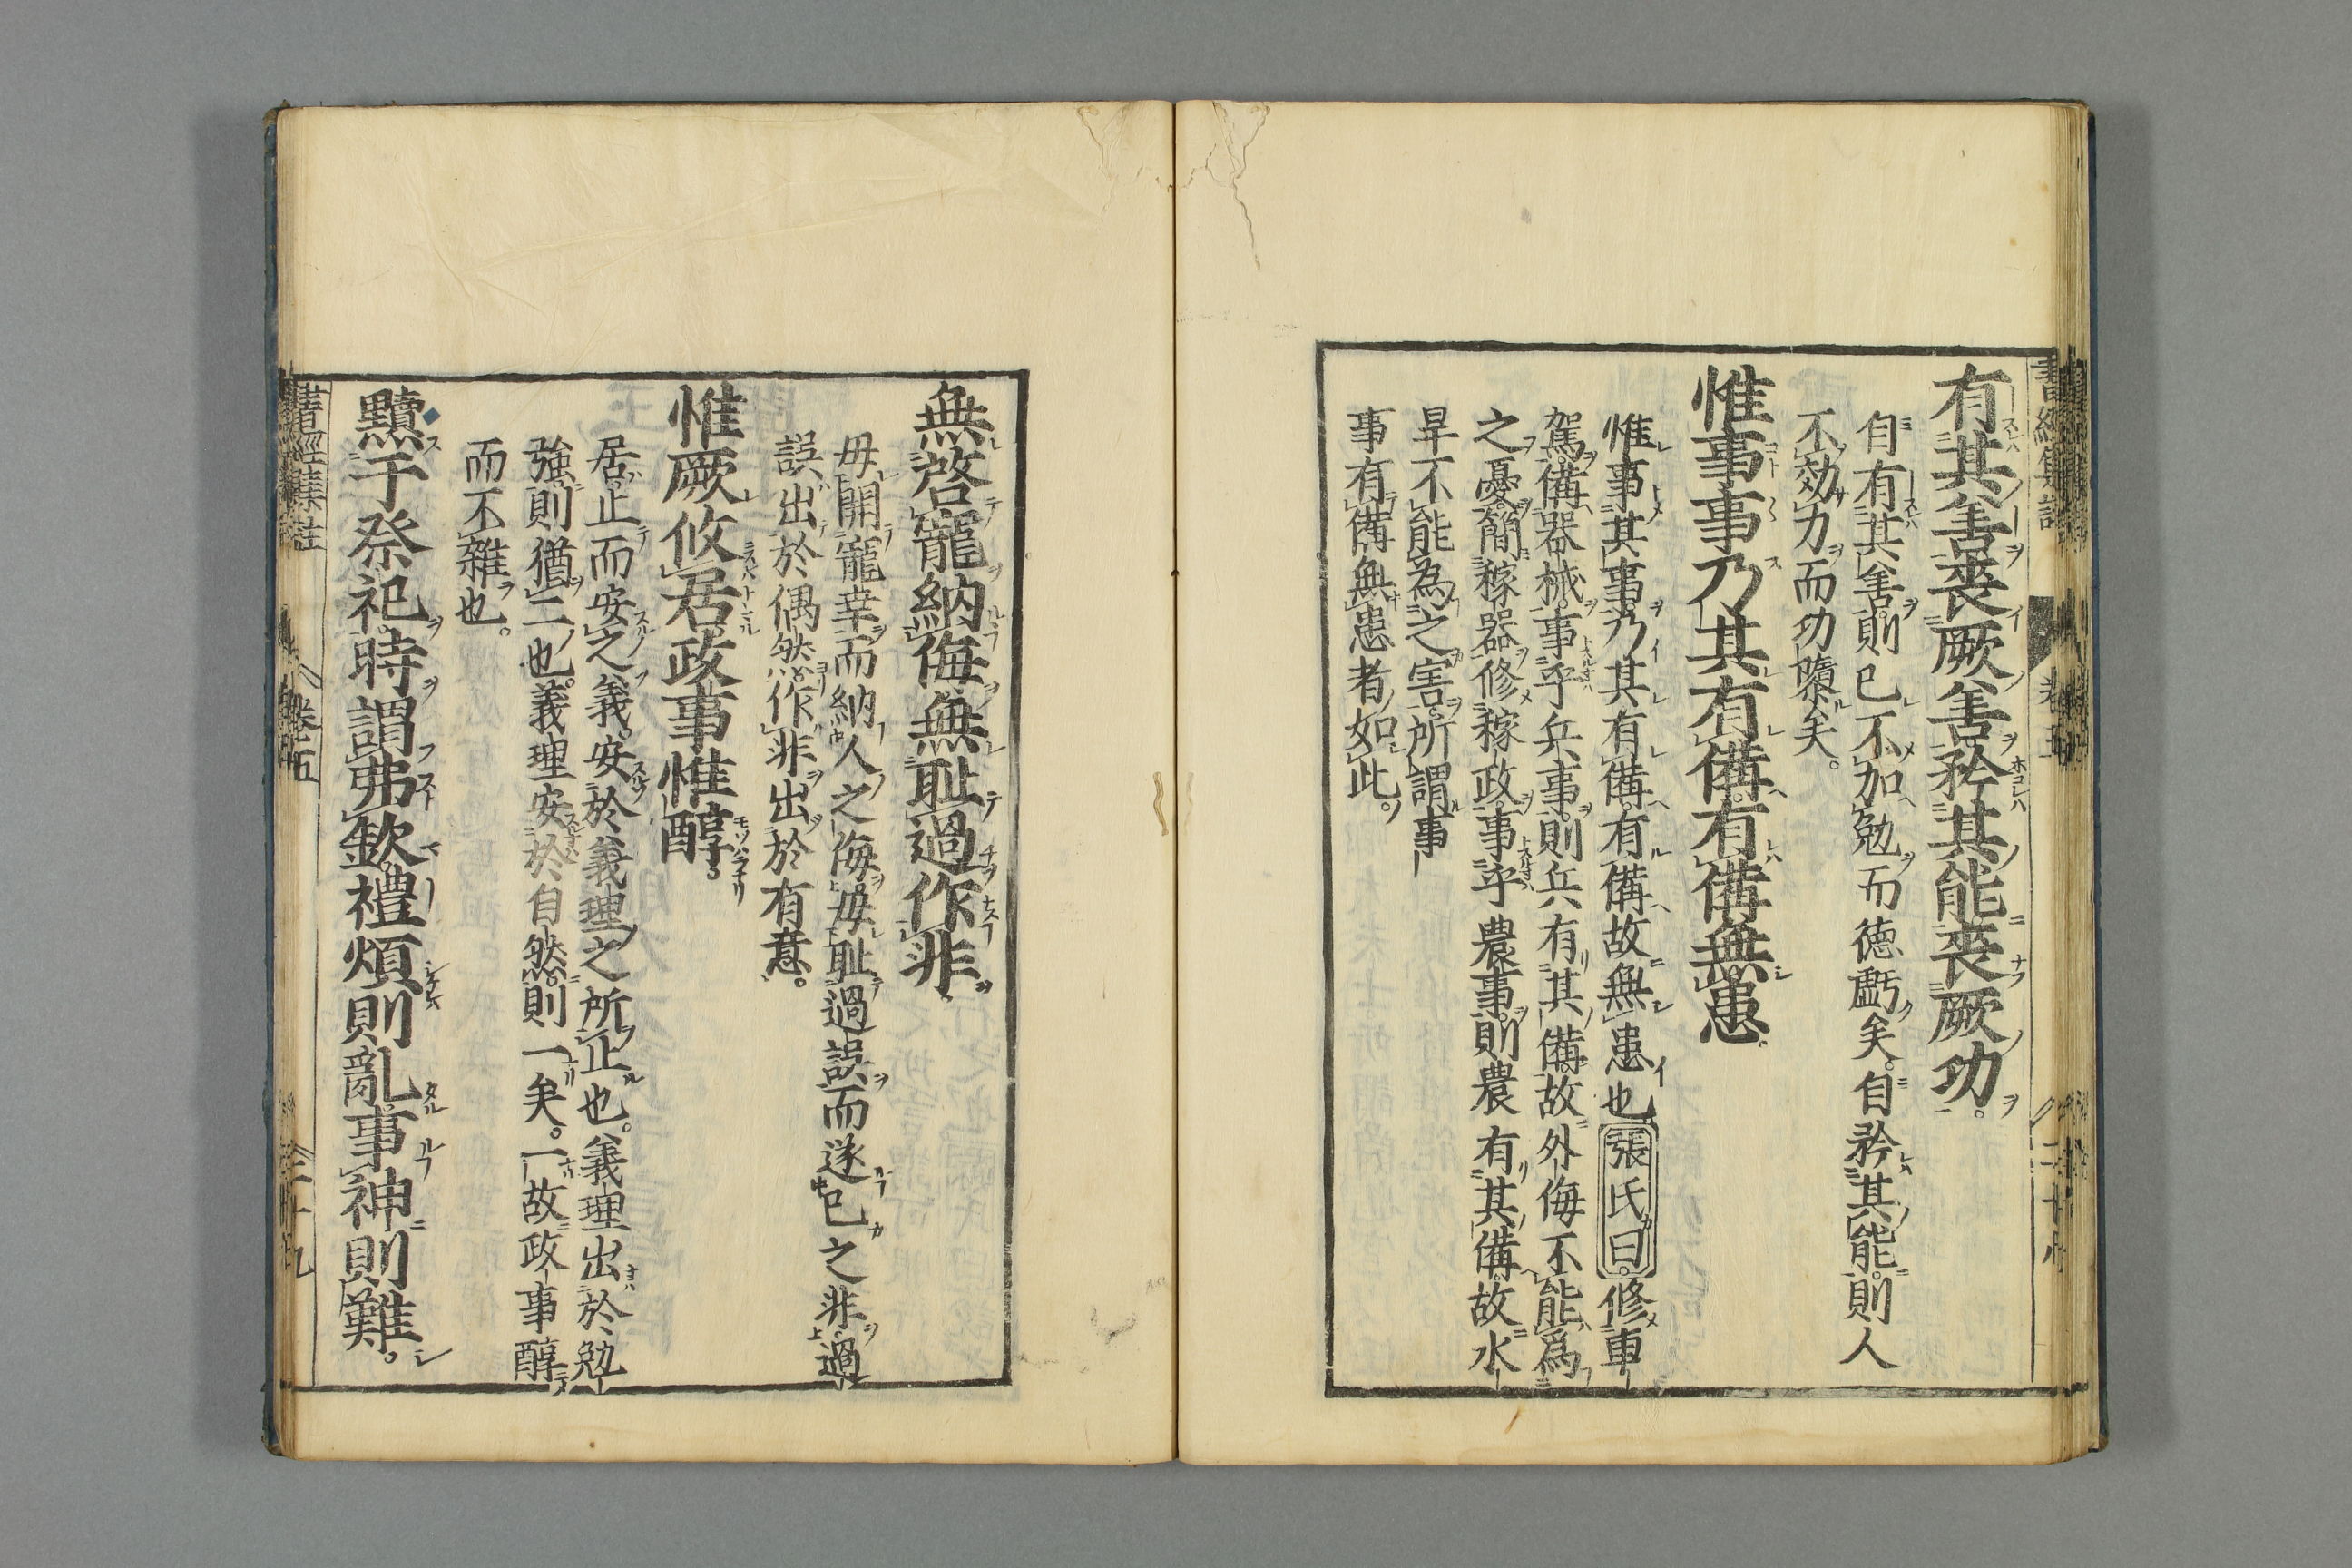 有其善喪厥善矜其能喪厥功。
自有其善則已不加勉而德虧矣。自矜其能則人
不効力而功隳矣。
惟事事乃其有備有備無患
惟事其事乃其有備有備故無患也張氏曰修車
駕備器械事乎兵事則兵有其備故外侮不能爲
之憂簡稼器修稼政事乎農事則農有其備故水
旱不能為之害所謂事
事有備無患者如此。
無啓寵納侮無恥過作非
毋開寵幸而納人之侮毋恥過誤而遂已之非過
誤出於偶然作非出於有意。
惟厥攸居政事惟醇。
居止而安之義安於義理之所止也。義理出於勉
強則猶二也義理安於自然則一矣。一故政事醇
而不雜也。
黷于祭祀時謂弗欽禮煩則亂事神則難。
書經集註 卷五